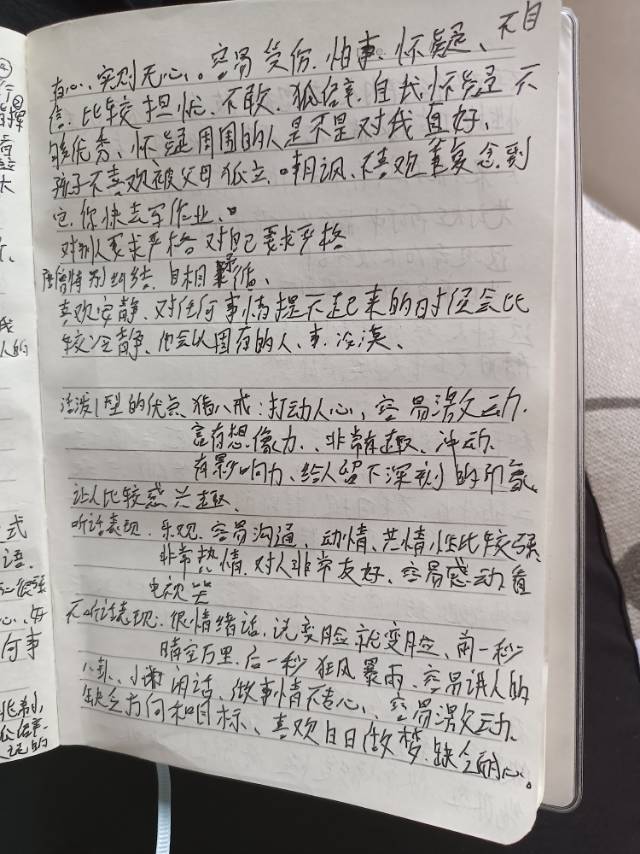 有心、实则无心。容易受伤、怕事、怀疑、不自
信、比较担忧、不敢、狐信率、自我怀疑 不
够优秀、怀疑周围的人是不是对我真好、
孩子不喜欢被父母孤立、嘲讽、不喜欢重复念到
它,你快去写作业、
对别人要求严格 对自己要求严格
唐僧特别纠结、自相循、
喜欢安静、对任何事情提不起来的时候会比
较冷静、他会以固有的人、事、冷漠、
活泼型的优点 猪八戒:打动人心,容易激动、
富有想像力、、非常有趣、冲动、
有影响力、给人留下深刻的印象、
让人比较感兴趣、
听话表现、乐观、容易沟通、动情、共情性比较强、
非常热情、对人非常友好、容易感动 看
电视 笑
不听话表现、很情绪话、说变脸就变脸、前一秒
晴空万里、后一秒狂风暴雨、容易讲人的
八卦、小闲话、做事情不专心、容易激动、
缺乏方向和目标、喜欢白日做梦、缺乏耐心。
式
语、
何事
人的
大